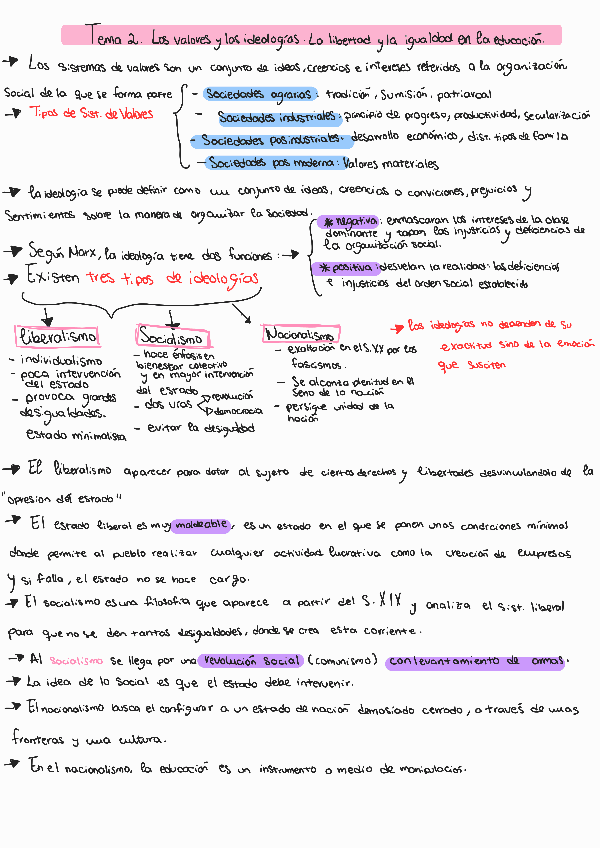 Tema 2. Los valores y las ideologías. La libertad y la igualdad en la educación.
→ Los sistemas de valores son un conjunto de ideas, creencias e intereses referidos a la organización
social de la que se forma parte
→ Tipos de Sist. de Valores
- Sociedades agrarias: tradición, sumisión, patriarcal
- Sociedades industriales: principio de progreso, productividad, secularización
- Sociedades posindustriales: desarrollo económico, dist. tipos de familia
- Sociedades pos moderna: Valores materiales
→ la ideología se puede definir como un conjunto de ideas, creencias o convicciones, prejuicios y
sentimientos sobre la manera de organizar la sociedad.
→ Según Marx, la ideología tiene dos funciones: →
* negativa: enmascaran los intereses de la clase
dominante y tapan las injusticias y deficiencias de
la organización social.
* positiva: desvelan la realidad: las deficiencias
e injusticias del orden social establecido
→ Existen tres tipos de ideologías
liberalismo
- individualismo
- poca intervención
del estado
- provoca grandes
desigualdades.
estado minimalista
Socialismo
- hace énfasis en
bienestar colectivo
y en mayor intervención
del estado
- dos vías
revolución
democracia
- evitar la desigualdad
Nacionalismo
- exaltación en el S.XX por los
fascismos.
- Se alcanza plenitud en el
seno de la nación
- persigue unidad de la
nación
→ las ideologías no dependen de su
exactitud sino de la emoción
que susciten
→ El liberalismo aparecer para dotar al sujeto de ciertos derechos y libertades desvinculandolo de la
"opresion del estado"
→ El estado liberal es muy moldeable, es un estado en el que se ponen unas condiciones mínimas
donde permite al pueblo realizar cualquier actividad lucrativa como la creación de empresas
y si falla, el estado no se hace cargo.
→ El socialismo es una filosofía que aparece a partir del S.XIX y analiza el sist. liberal
para que no se den tantas desigualdades, donde se crea esta corriente.
→ Al socialismo se llega por una revolución social (comunismo) con levantamiento de armas.
→ La idea de lo social es que el estado debe intervenir.
→ El nacionalismo busca el configurar a un estado de nación demasiado cerrado, a través de unas
fronteras y una cultura.
→ En el nacionalismo, la educación es un instrumento o medio de manipulación.